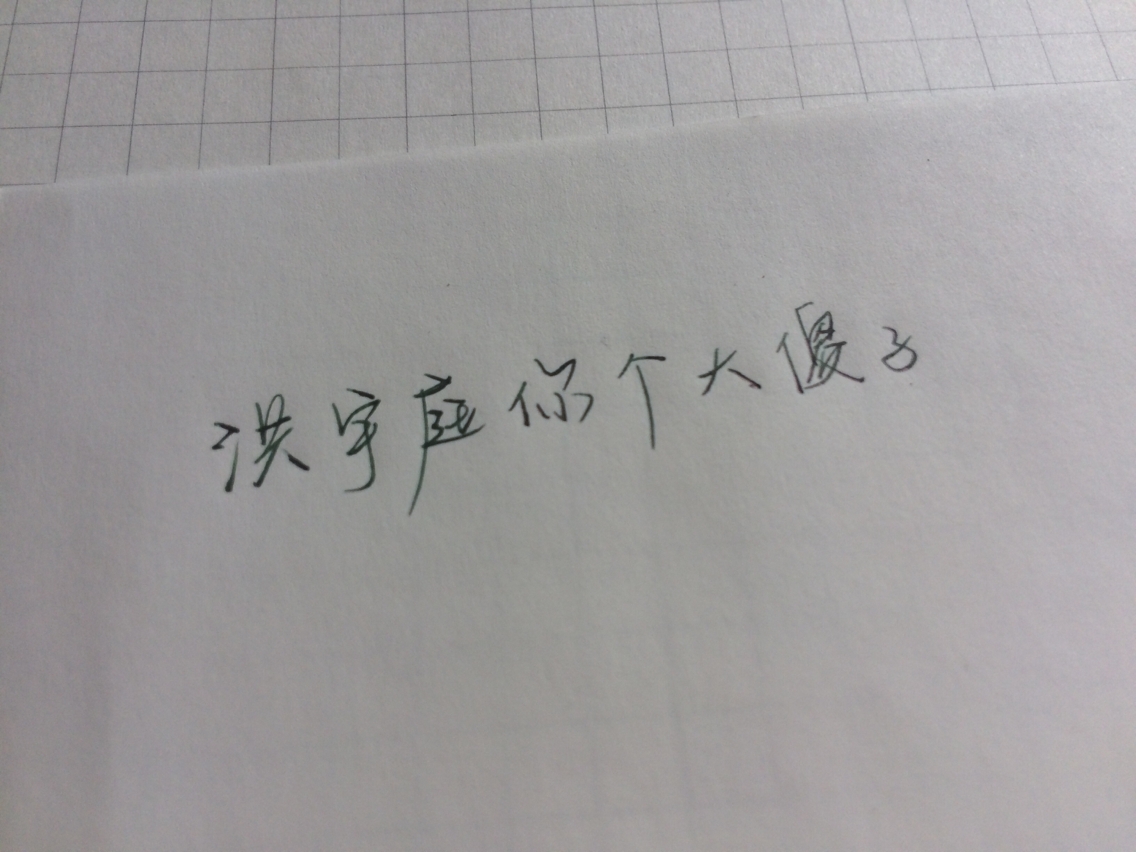 洪宇庭你个大傻子